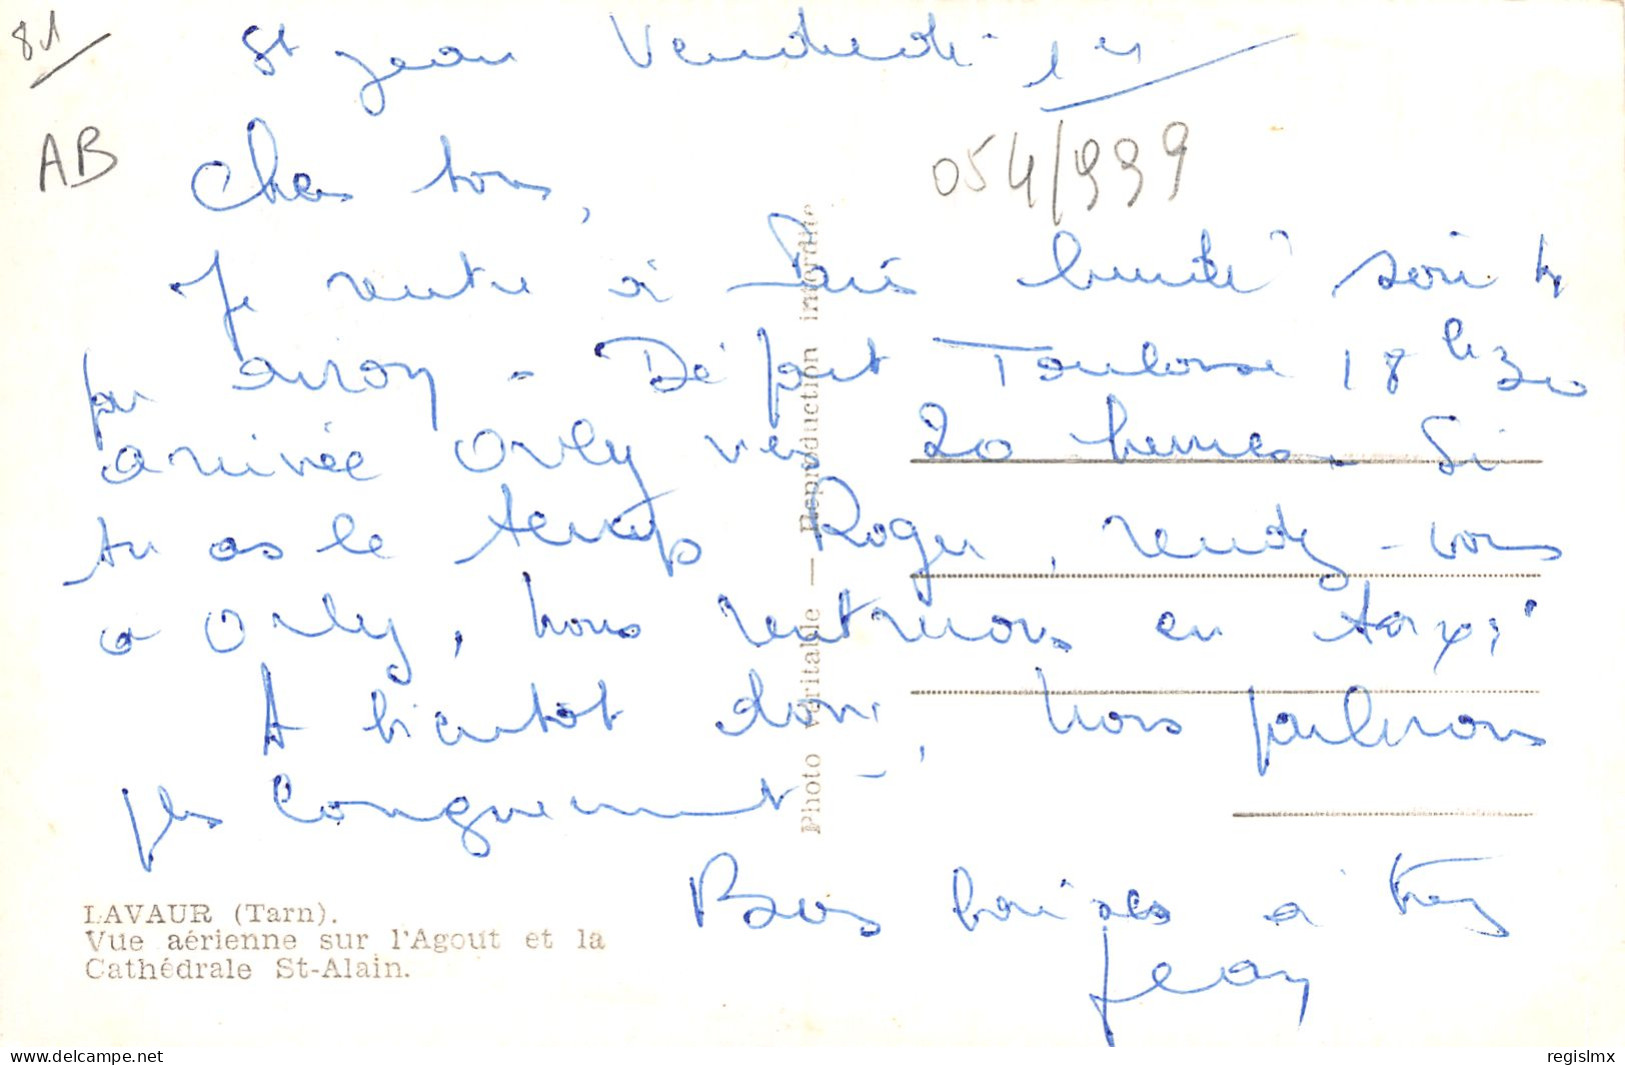 81
St Jean Vendredi 1er
AB
054/999
Chers tous,
Je rentre à Paris lundi soir
par avion - Départ Toulouse 18h30
arrivée Orly vers 20 heures. Si
tu as le temps Roger, rendez-vous
a Orly, nous rentrerons en taxi
A bientôt donc, nous parlerons
plus longuement -
Bons baisers à tous
Jean
LAVAUR (Tarn).
Vue aérienne sur l'Agout et la
Cathédrale St-Alain.
Photo véritable — Reproduction interdite
delcampe.net
regislmx